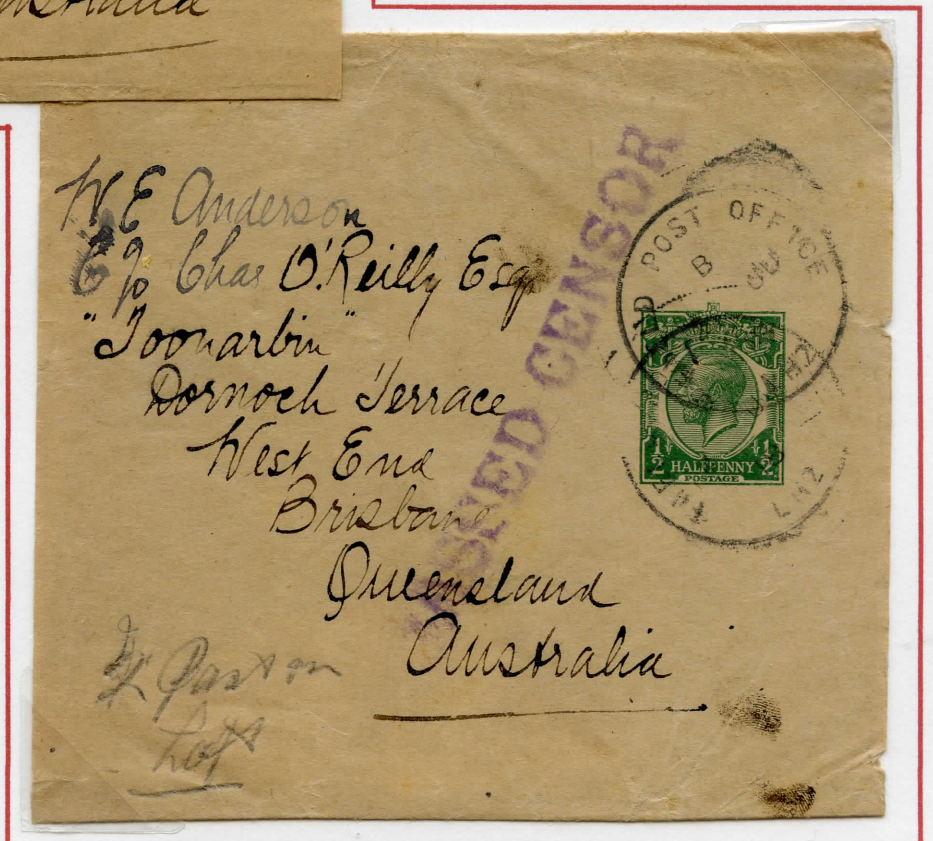 Australia
W E Anderson
C/o Chas O'Reilly Esq
"Toonarbin"
Dornoch Terrace
West End
Brisbane
Queensland
Australia
PASSED CENSOR
POST OFFICE
B
½ ½
HALFPENNY
POSTAGE